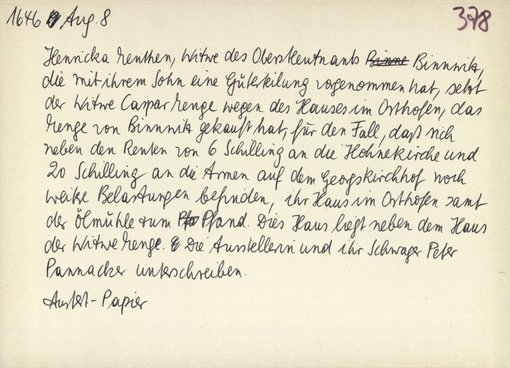 1646 Aug. 8
378
Henricka Menthen, Witwe des Oberstleutnants Binnwik,
die mit ihrem Sohn eine Güterteilung vorgenommen hat, setzt
der Witwe Caspar Menge wegen des Hauses im Osthofen, das
Menge von Binnwik gekauft hat, für den Fall, daß sich
neben den Renten von 6 Schilling an die Hohnekirche und
20 Schilling an die Armen auf dem Georgskirchhof noch
weitere Belastungen befinden, ihr Haus im Osthofen samt
der Ölmühle zum Pfand. Dies Haus liegt neben dem Haus
der Witwe Menge. Die Ausstellerin und ihr Schwager Peter
Pannacker unterschreiben.
Papier